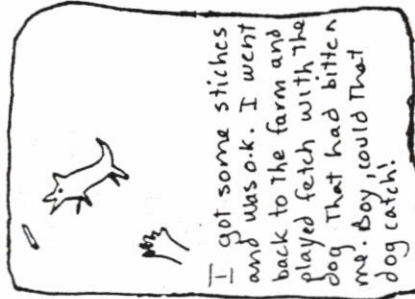 I got some stiches
and was o.k. I went
back to the farm and
played fetch with the
dog that had bitten
me. Boy, could that
dog catch!